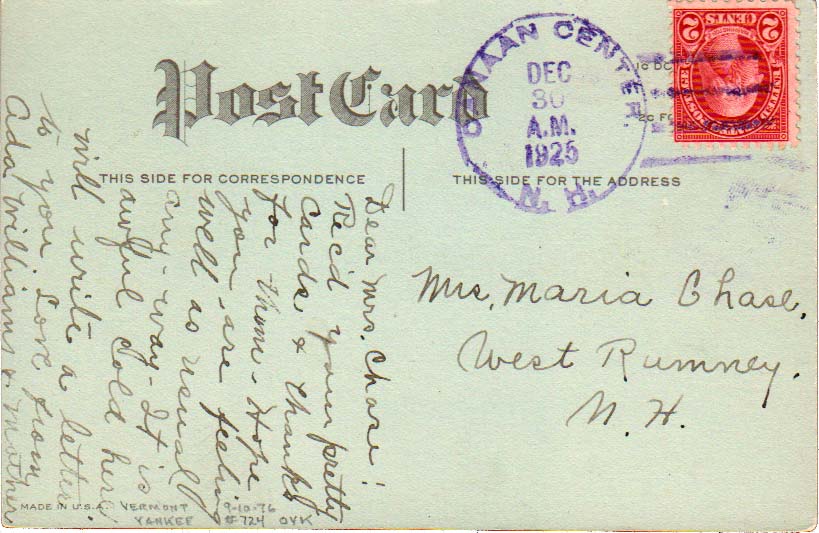 Post Card
THIS SIDE FOR CORRESPONDENCE
THIS SIDE FOR THE ADDRESS
CANAAN CENTER.
DEC
30
A.M.
1925
N.H.
1c DO
2c FO
2 CENTS 2
Dear Mrs. Chase!
Rec'd your pretty
Cards & thanks
for them. Hope
you are feeling
well as usual
any-way- It is
awful Cold here!
will write a letter
to you Love from
Ada Williams & Mother
Mrs. Maria Chase,
West Rumney.
N.H.
MADE IN U.S.A.
VERMONT
YANKEE
9-10-76
#724 OYK